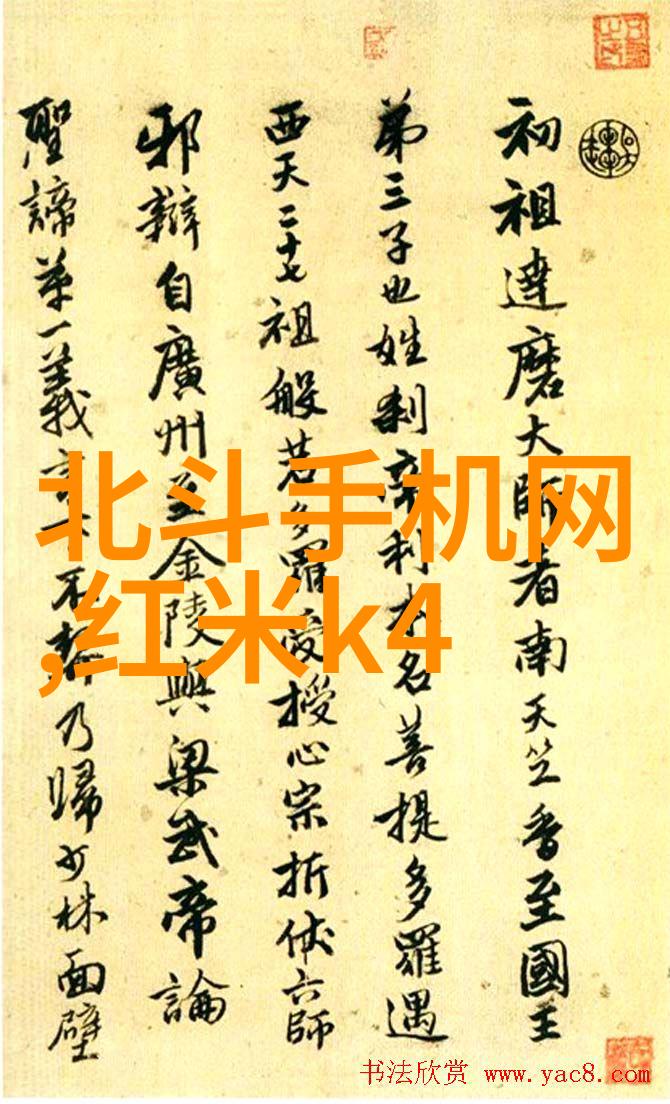 初祖達磨大師者南天竺香至國王
第三子也姓刹帝利本名菩提多羅遇
西天二十七祖般若多羅受授心宗折伏六師
邪辯自廣州至金陵與梁武帝論
聖諦第一義言下不契乃歸少林面壁
北斗手机网
,红米k4
书法欣赏 www.yac8.com